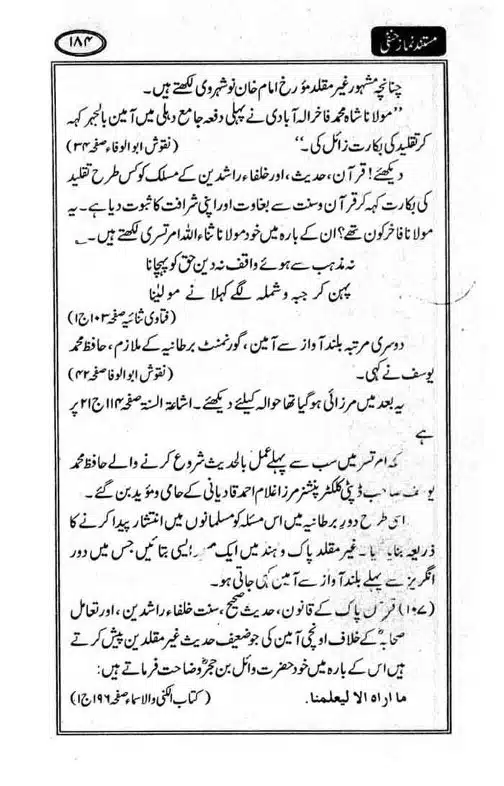 مستند نماز حنفی
۱۸۴
چنانچہ مشہور غیر مقلد مؤرخ امام خان نوشہروی لکھتے ہیں۔
’’مولانا شاہ محمد فاخر الہ آبادی نے پہلی دفعہ جامع دہلی میں آمین بالجہر کہہ
کر تقلید کی بکارت زائل کی۔‘‘ (نقوش ابوالوفاء صفحہ ۳۴)
دیکھئے! قرآن، حدیث، اور خلفاء راشدین کے مسلک کو کس طرح تقلید
کی بکارت کہہ کر قرآن و سنت سے بغاوت اور اپنی شرافت کا ثبوت دیا ہے۔ یہ
مولانا فاخر کون تھے؟ ان کے بارہ میں خود مولانا ثناء اللہ امرتسری لکھتے ہیں۔
نہ مذہب سے ہوئے واقف نہ دین حق کو پہچانا
پہن کر جبہ و شملہ لگے کہلانے مولینا
(فتاویٰ ثنائیہ صفحہ ۱۰۳ ج۱)
دوسری مرتبہ بلند آواز سے آمین، گورنمنٹ برطانیہ کے ملازم، حافظ محمد
یوسف نے کہی۔ (نقوش ابوالوفا صفحہ ۴۲)
یہ بعد میں مرزائی ہو گیا تھا حوالہ کیلئے دیکھئے۔ اشاعۃ السنۃ صفحہ ۱۱۴ ج۲۱ پر
ہے
کہ امرتسر میں سب سے پہلے عمل بالحدیث شروع کرنے والے حافظ محمد
یوسف صاحب ڈپٹی کلکٹر پنشنر مرزا غلام احمد قادیانی کے حامی و مؤید بن گئے۔
اسی طرح دور برطانیہ میں اس مسئلہ کو مسلمانوں میں انتشار پیدا کرنے کا
ذریعہ بنایا گیا۔ غیر مقلد پاک و ہند میں ایک ایسی بتائیں جس میں دور
انگریز سے پہلے بلند آواز سے آمین کہی جاتی ہو۔
(۱۰۷) قرآن پاک کے قانون، حدیث صحیح، سنت خلفاء راشدین، اور تعامل
صحابہؓ کے خلاف اونچی آمین کی جو ضعیف حدیث غیر مقلدین پیش کرتے
ہیں اس کے بارہ میں خود حضرت وائل بن حجرؓ وضاحت فرماتے ہیں:
ما اراہ الا لیعلمنا۔ (کتاب الکنی والاسماء صفحہ ۱۹۶ ج۱)